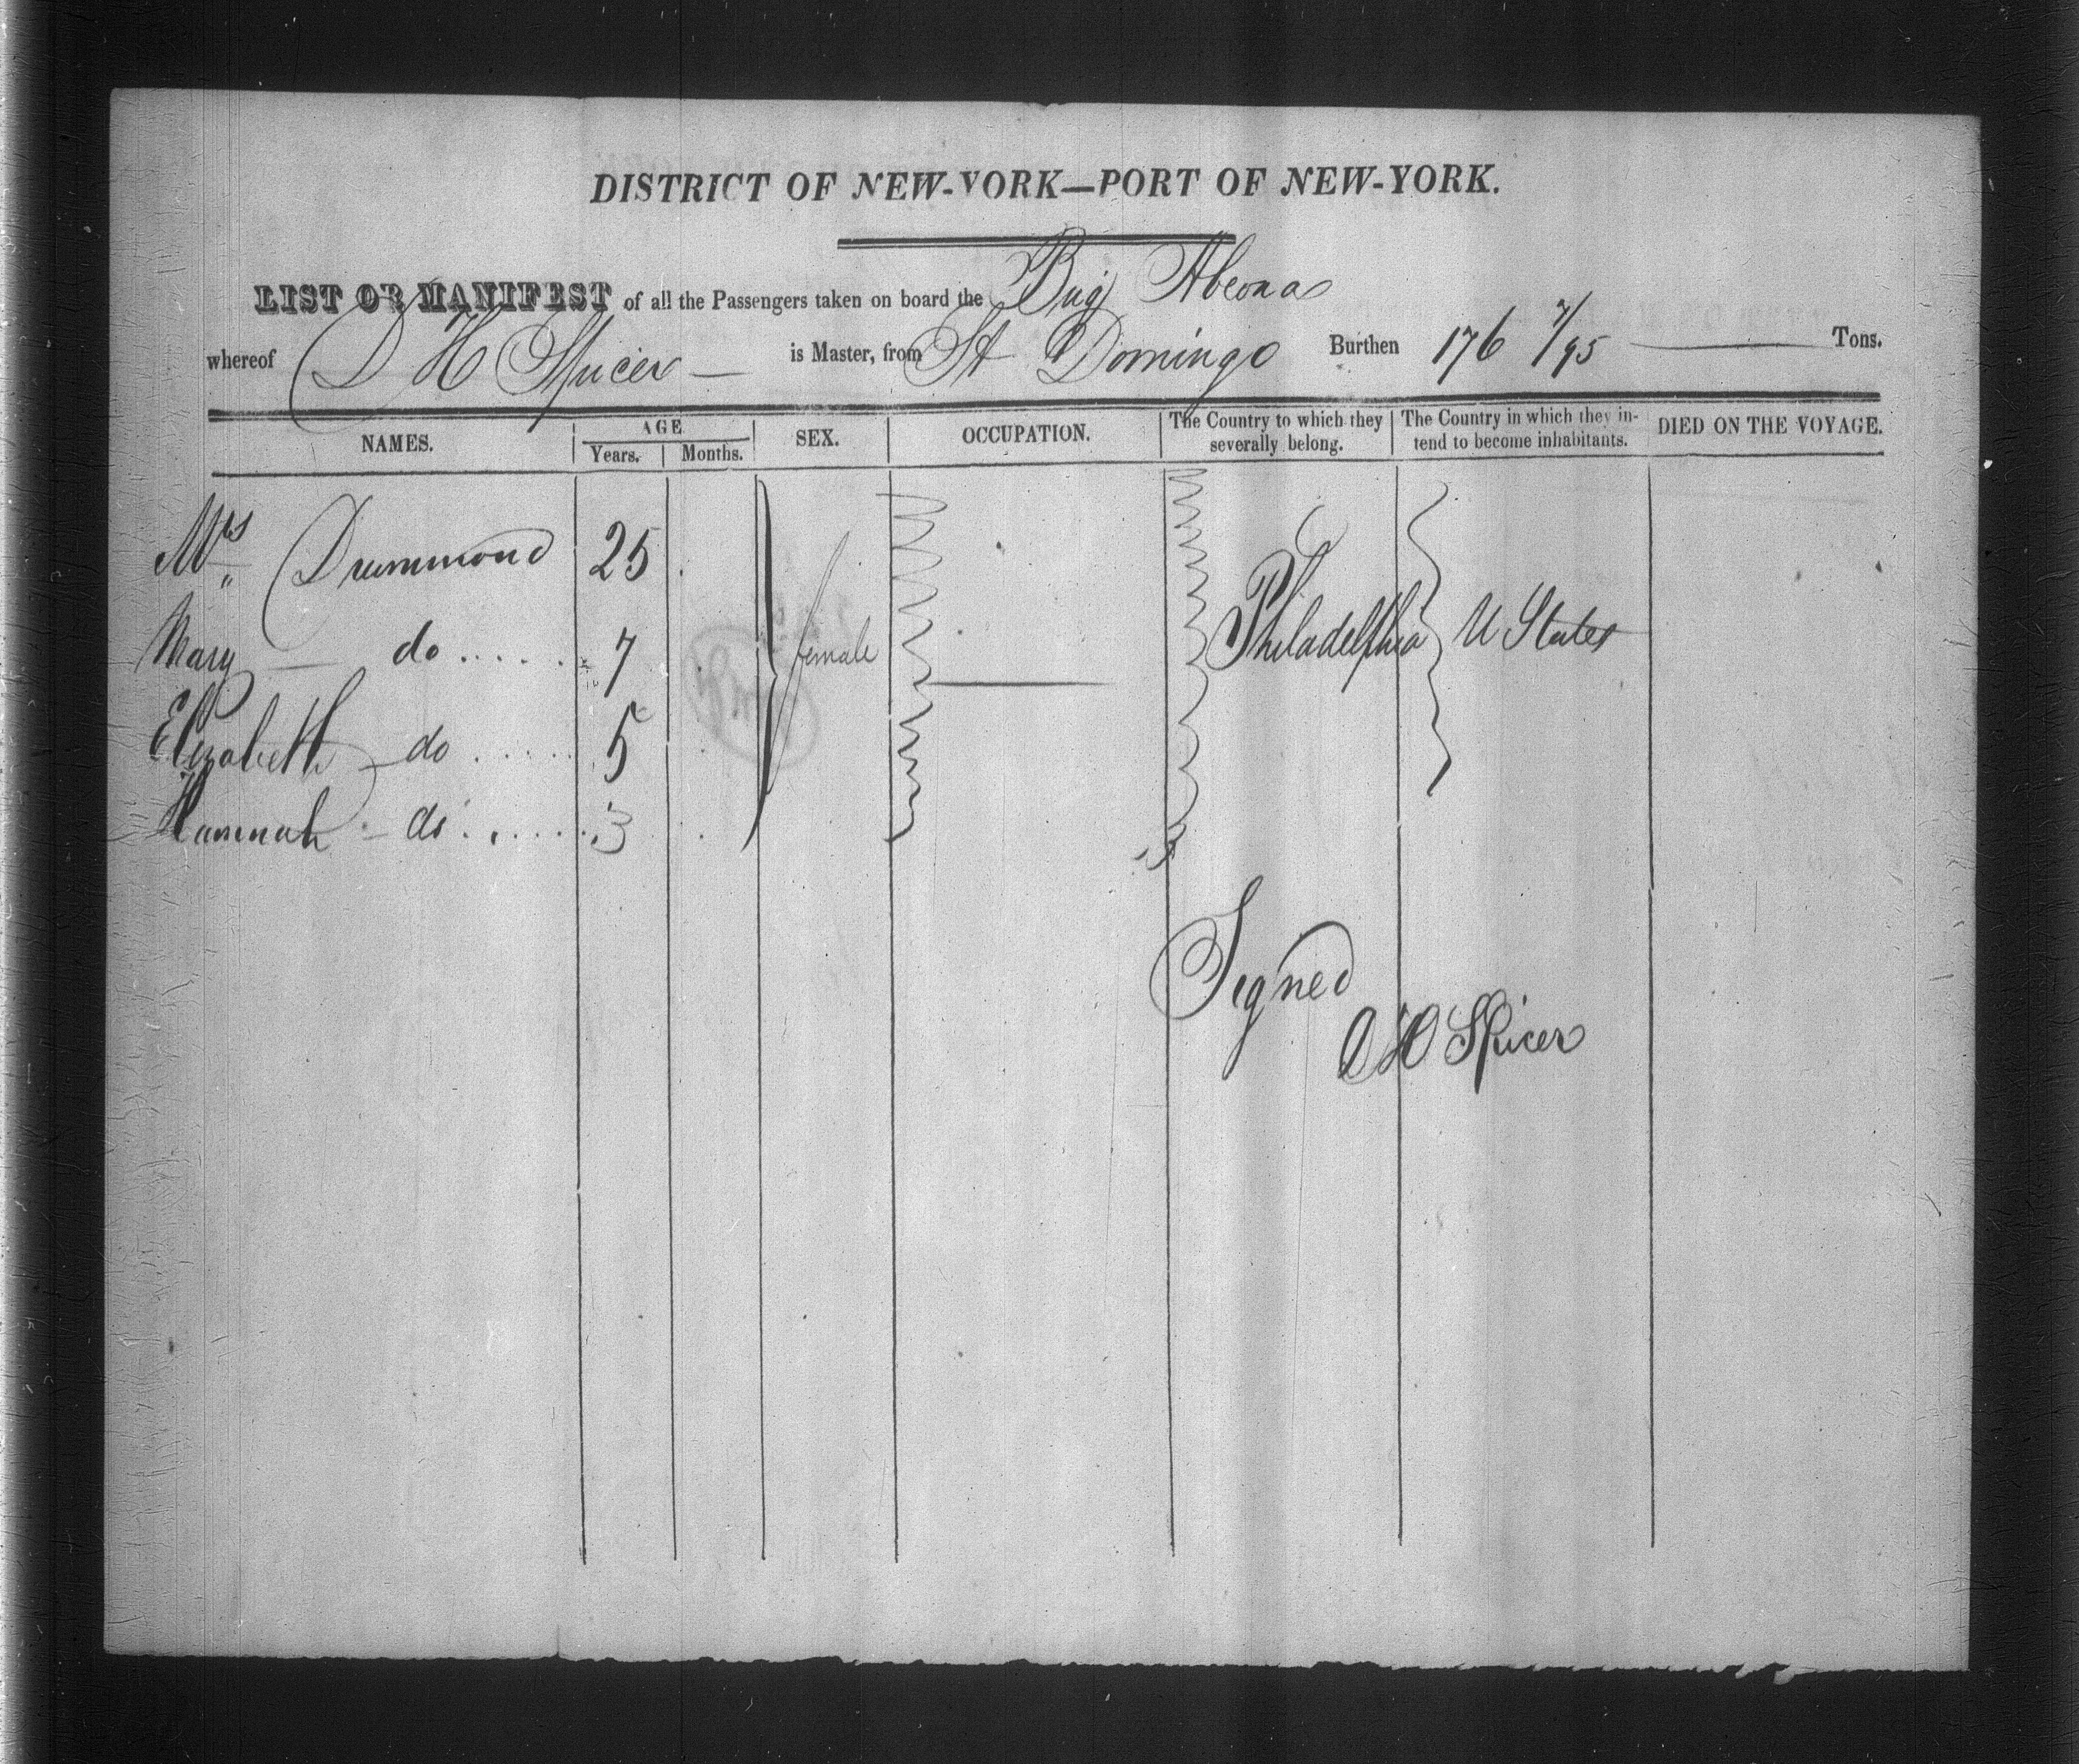 DISTRICT OF NEW-YORK—PORT OF NEW-YORK.
LIST OR MANIFEST of all the Passengers taken on board the Brig Abeona
whereof D H Spicer — is Master, from St Domingo Burthen 176 7/95 Tons.
NAMES. AGE Years. Months. SEX. OCCUPATION. The Country to which they severally belong. The Country in which they intend to become inhabitants. DIED ON THE VOYAGE.
Mrs Drummond 25
Mary — do ..... 7 female Philadelphia U States
Elizabeth — do ..... 5
Hannah — do ..... 3
Signed
D H Spicer